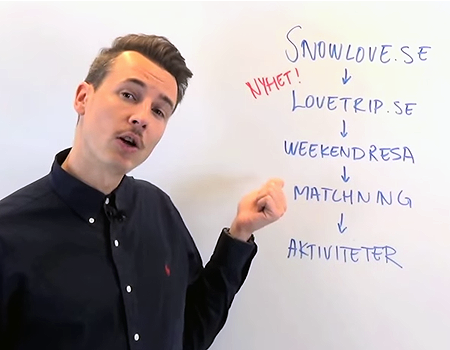 SNOWLOVE.SE
↓
NYHET!
LOVETRIP.SE
↓
WEEKENDRESA
↓
MATCHNING
↓
AKTIVITETER